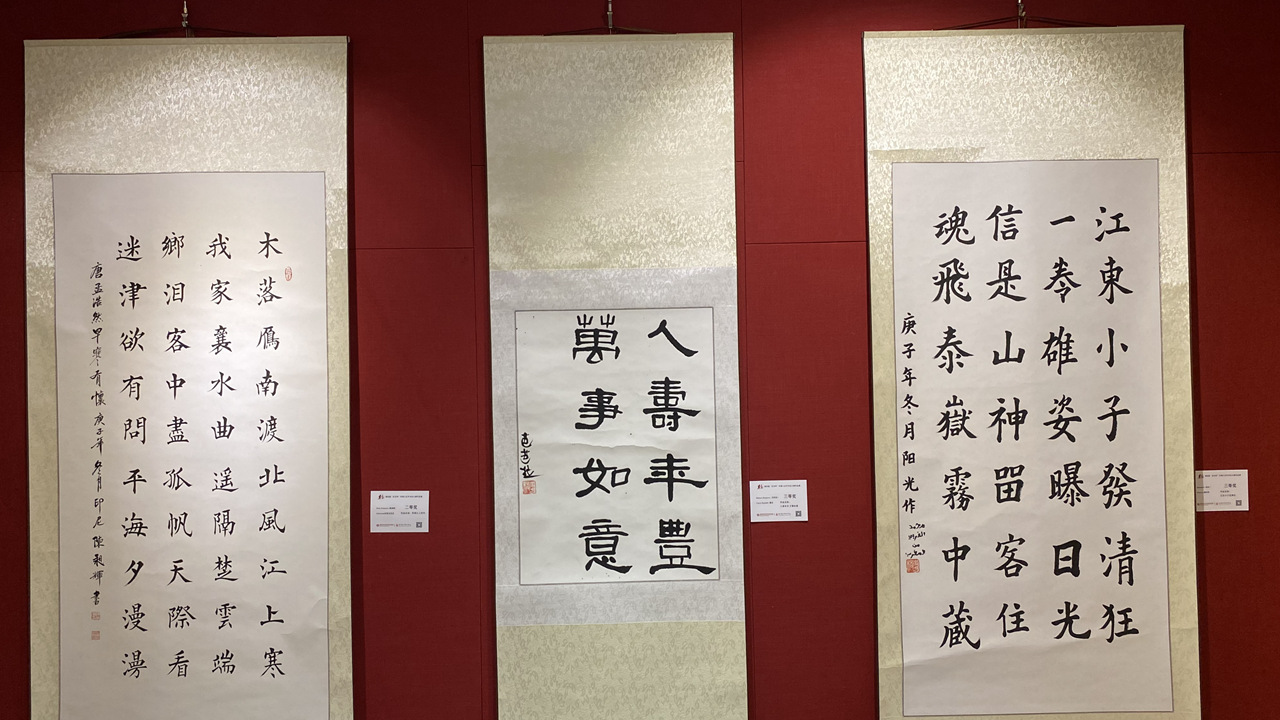 木落鴈南渡北風江上寒
我家襄水曲遥隔楚雲端
鄉泪客中盡孤帆天際看
迷津欲有問平海夕漫漫
唐孟浩然早寒有懷庚子年冬月印尼陳
書
二等奖
人壽年豊
萬事如意
三等奖
江東小子發清狂
一拳雄姿曝日光
信是山神畱客住
魂飛泰嶽霧中藏
庚子年冬月阳光作
三等奖